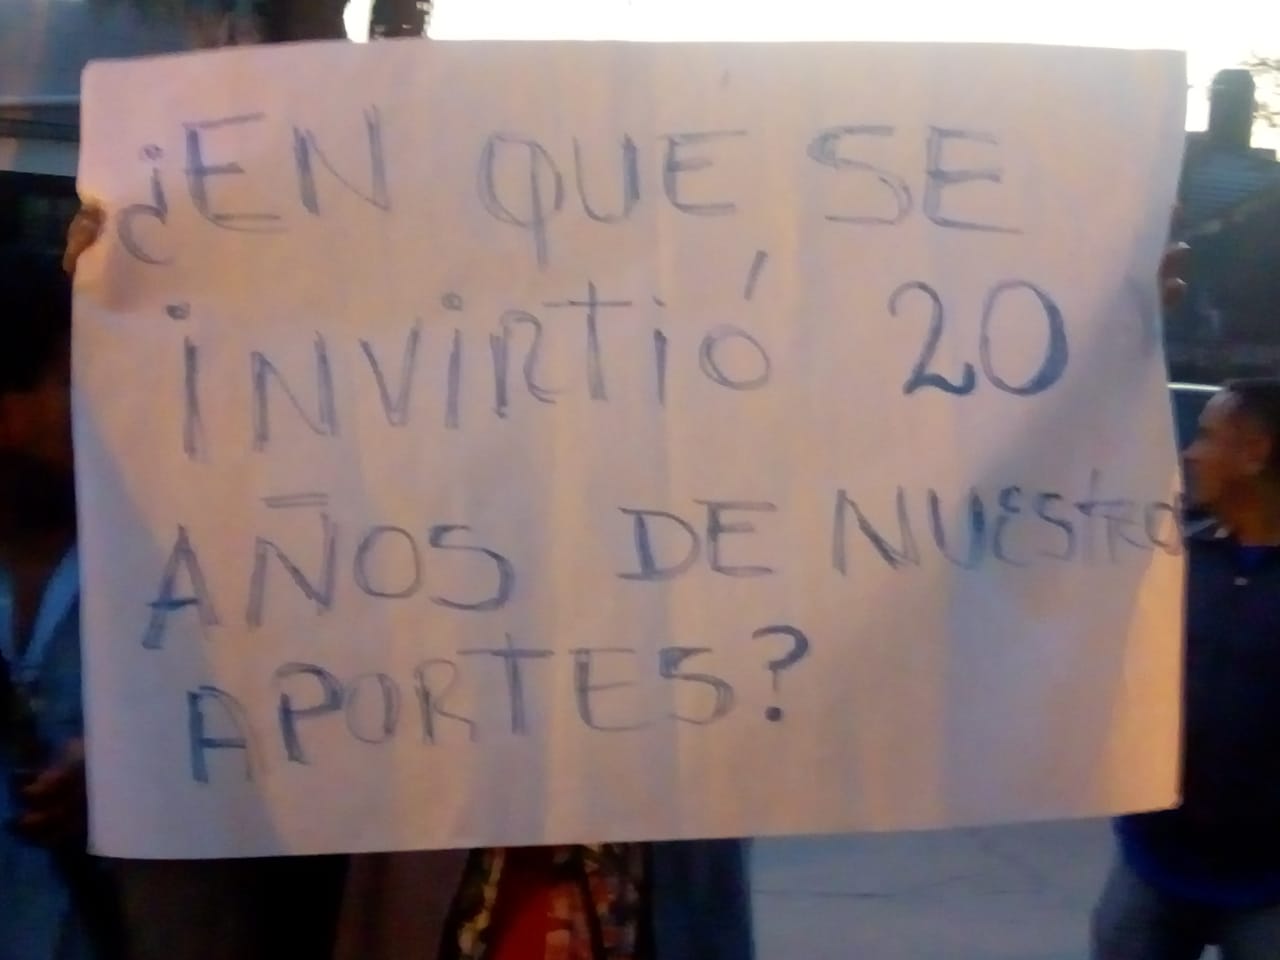 ¿EN QUE SE
iNViRTió 20
AÑOS DE NUESTRO
APORTES?